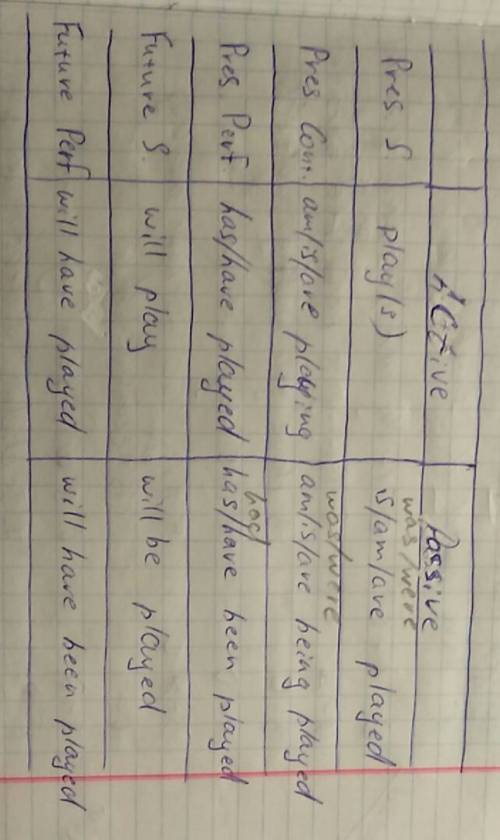 Active Passive
was/were
Pres S. play(s) is/am/are played
was/were
Pres Cont. am/is/are playing am/is/are being played
had
Pres. Perf. has/have played has/have been played
Future S. will play will be played
Future Perf will have played will have been played